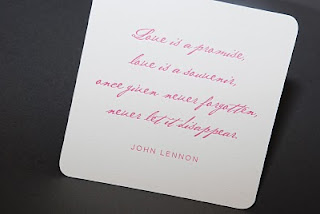 Love is a promise,
love is a souvenir,
once given never forgotten,
never let it disappear
JOHN LENNON